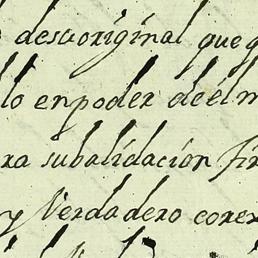 desuoriginal que q
lo enpoder de él m
ra subalidación fir
y Verdadero corex